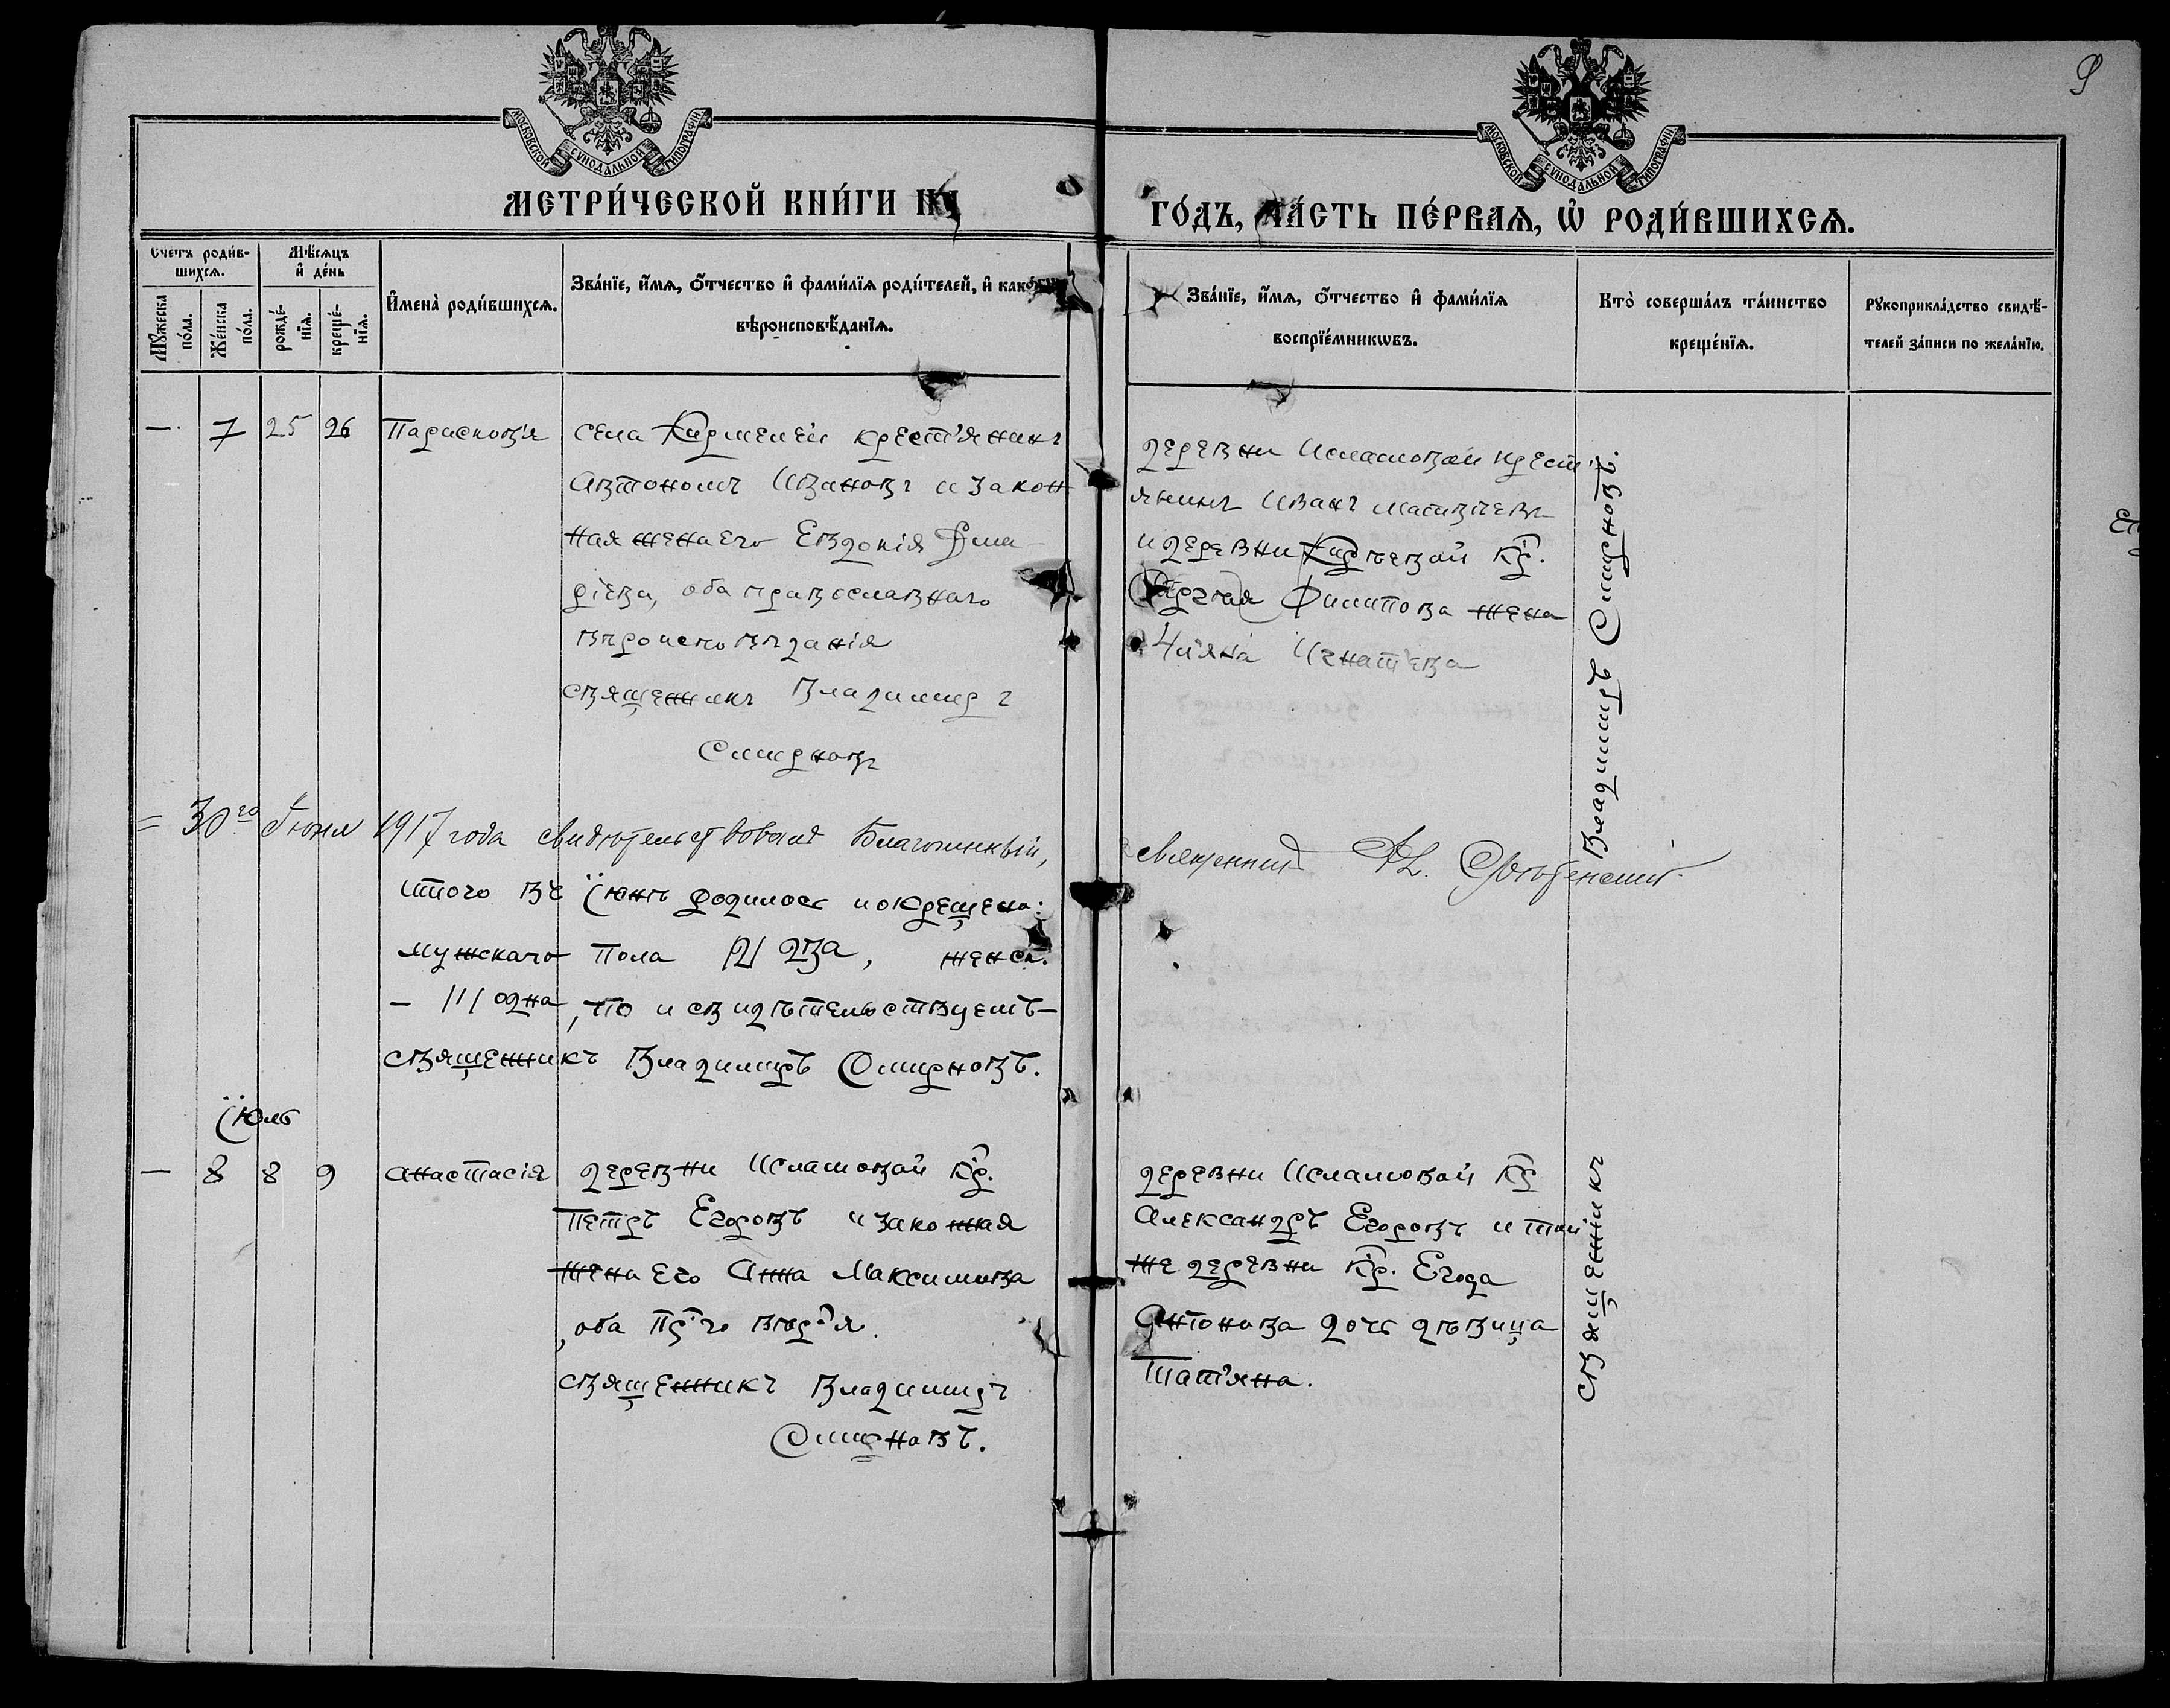 9
МОСКОВСКОЙ СѴНОДАЛЬНОЙ ТИПОГРАФІИ
МОСКОВСКОЙ СѴНОДАЛЬНОЙ ТИПОГРАФІИ
МЕТРИ́ЧЕСКОЙ КНИ́ГИ НА
ГО́ДЪ, ЧА́СТЬ ПЕ́РВАЯ, Ѡ҆ РОДИ́ВШИХСЯ.
Счетъ роди́в-
шихся.
Мѣ́сяцъ
и҆ де́нь
Мꙋ́жеска
по́ла.
Же́нска
по́ла.
рожде́-
нїя.
креще́-
нїя.
И҆мена̀ роди́вшихся.
Зва́нїе, и҆́мя, ѻ҆́тчество и҆ фами́лїя роди́телей, и҆ како́гѡ
вѣроисповѣ́данїя.
Зва́нїе, и҆́мя, ѻ҆́тчество и҆ фами́лїя
воспрїе́мникѡвъ.
Кто̀ соверша́лъ та́инство
креще́нїя.
Рꙋкоприкла́дство свидѣ́-
телей за́писи по жела́нїю.
— 7 25 26 Парасковія
села Кармелеи крестьянинъ
Автономъ Ивановъ и закон
ная жена его Евдокія
оба православнаго
вѣроисповѣданія
священникъ Владимиръ
Смирновъ
деревни Исламовой крест
янинъ Иванъ Матвѣевъ
и деревни кр.
Филипова жена
Игнатьева
Владимиръ Смирновъ.
= 30го Іюня 1917 года свидѣтельствовалъ Благочинный,
священникъ
итого въ Іюнѣ родилось и окрещено:
мужскаго пола /2/ два, женск.
– /1/ одна, то и свидѣтельствуемъ –
священникъ Владимиръ Смирновъ.
Іюль
— 8 8 9 Анастасія
деревни Исламовой кр.
Петръ Егоровъ и законная
жена его Анна Максимова
, оба пр-го вѣр-я.
священникъ Владимиръ
Смирновъ.
деревни Исламовой кр
Александръ Егоровъ и той
же деревни кр. Егора
Антонова дочь дѣвица
Татьяна.
священникъ